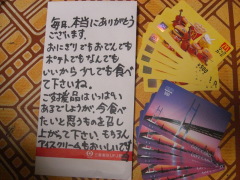 毎日、本当にありがとう
ございます。
おにぎりでもおでんでも
ポットでもなんでも
いいから少しでも食べ
て下さいね。
ご支援品はいっぱい
あるでしょうが、今食べ
たいと思うものを召し
上がって下さい。もちろん
アイスクリームもおいしいです